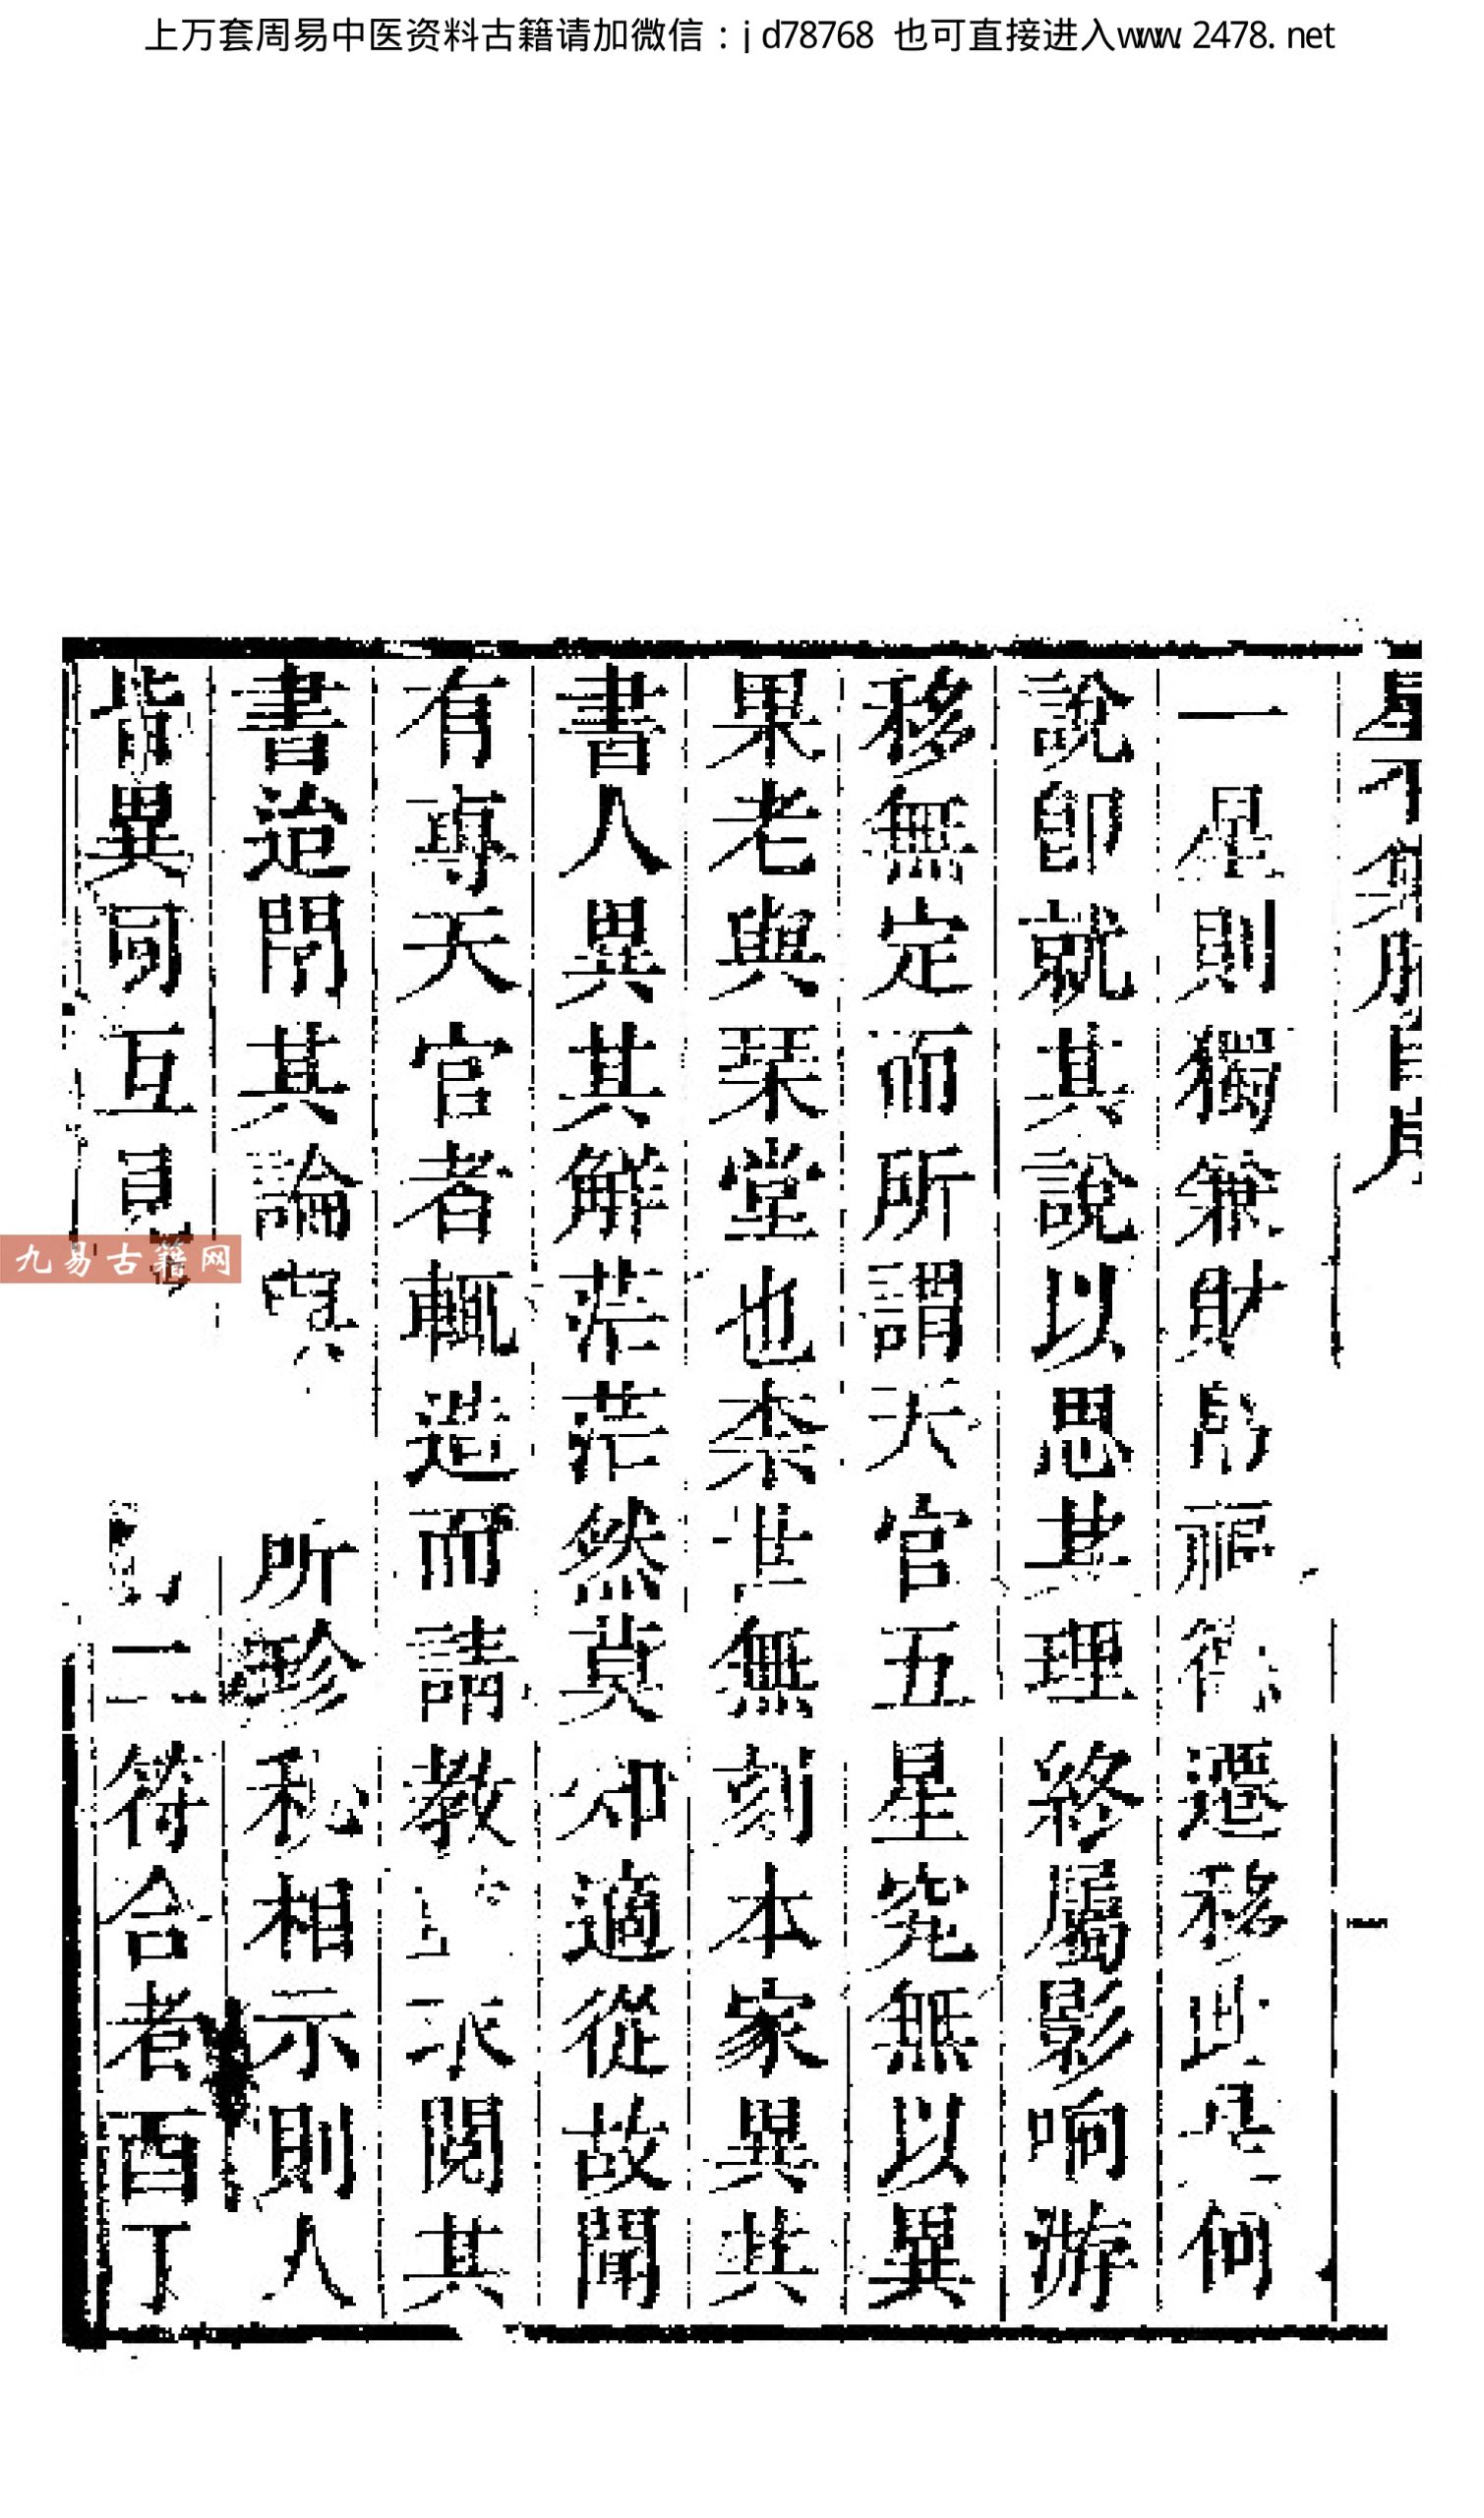 上万套周易中医资料古籍请加微信：jd78768 也可直接进入www.2478.net
一星則獨兼財 福 遷移此是何
說即就其說以思其理終屬影响游
移無定而所謂天官五星究無以異
果老與琹堂也柰世無刻本家異其
書人異其解茫茫然莫知適從故聞
有專天官者輒造而請教 求閱其
書迨閱其論 所珍秘相示則人
皆異同互見 一二符合者酉丁
一
九易古籍网